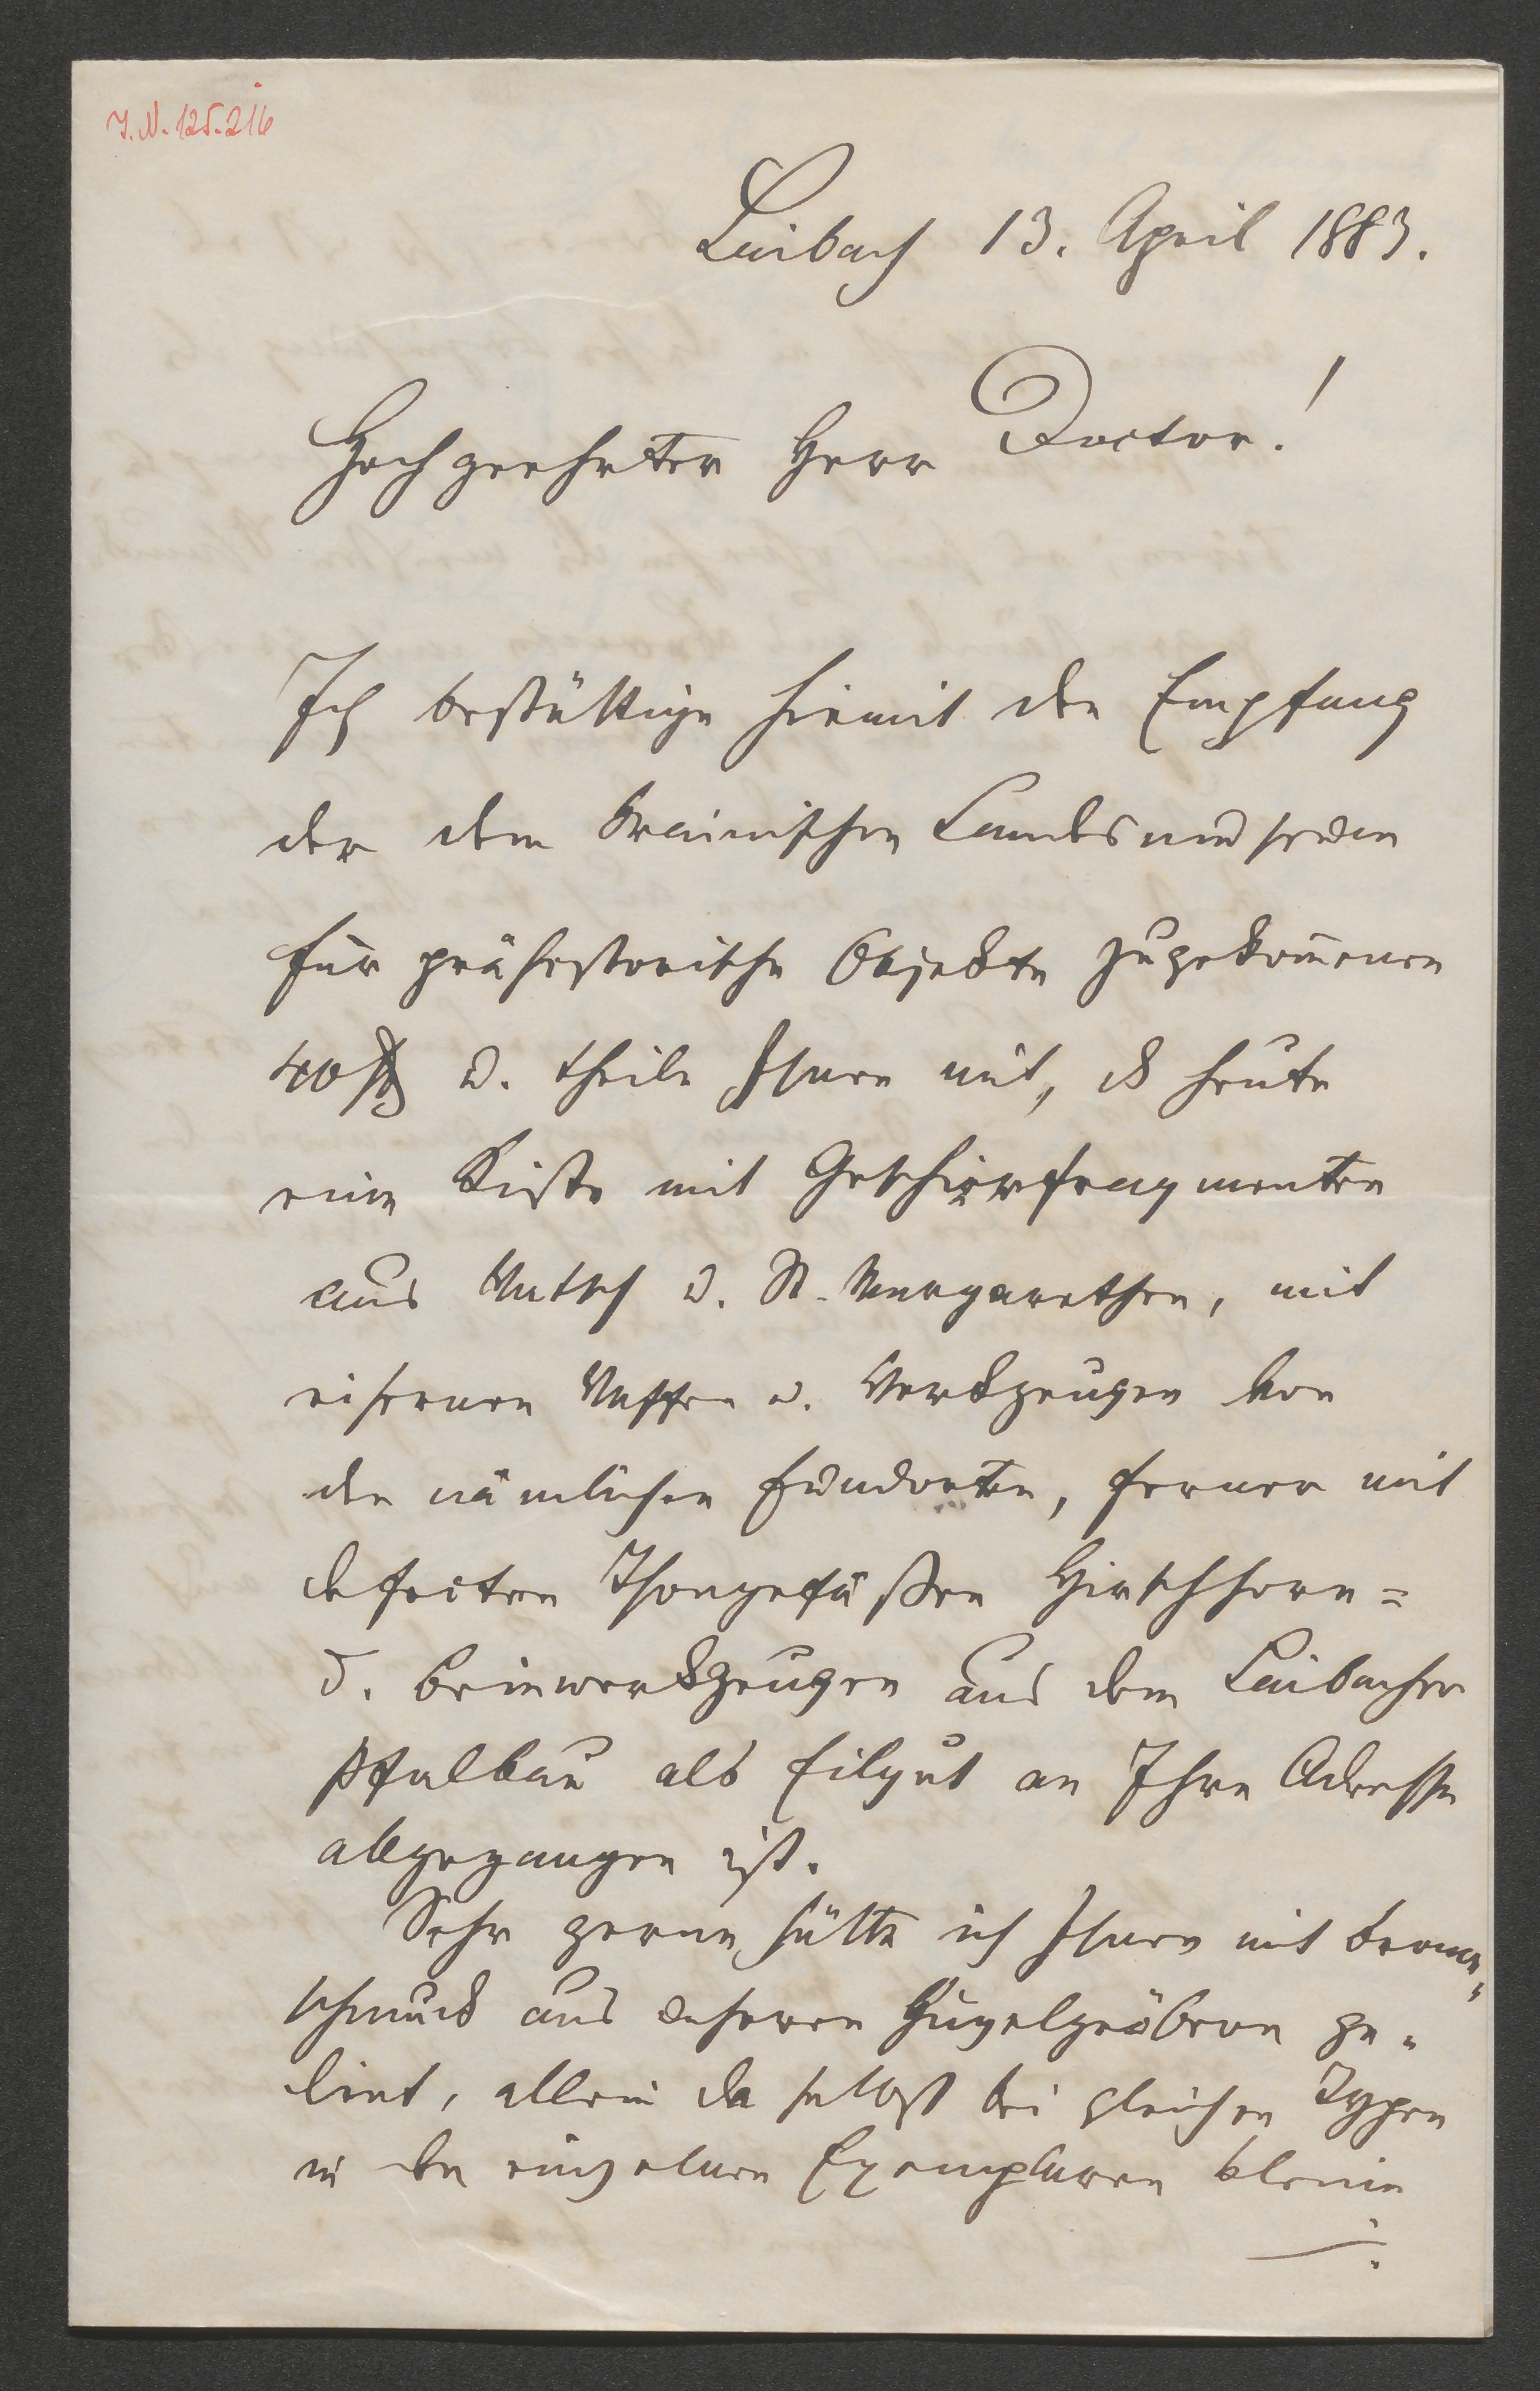 I.N. 125.216
Laibach 13. April 1883.
Hochgeehrter Herr Doctor!
Ich bestättige hiemit den Empfang
der dem krainischen Landesmuseum
für prähistorische Objekte zugekom̄enen
40 f u. theile Ihnen mit, dß heute
eine Kiste mit Geschirrfragmenten
aus Watsch u. St. Margarethen, mit
eisernen Waffen u. Werkzeugen von
den nämlichen Fundorten, ferner mit
defecten Thongefäßen Hirschhorn=
u. Beinwerkzeugen aus dem Laibacher
Pfalbau als Eilgut an Ihre Adresse
abgegangen ist.
Sehr gerne hätte ich Ihnen mit Bronce-
schmuck aus unseren Hügelgräbern ge-
dient, allein da selbst bei gleichen Typen
in den einzelnen Exemplaren kleine
./.